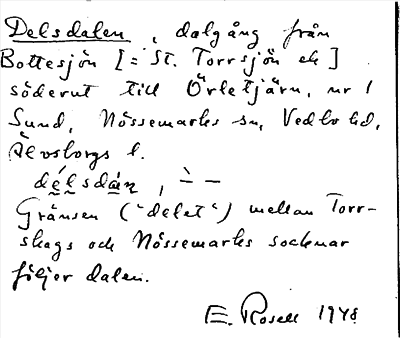 Delsdalen, dalgång från
Bottesjön [= St. Torrsjön ek]
söderut till Örletjärn, nr 1
Sund, Nössemarks sn, Vedbo hd,
Älvsborgs l.
délsdàn, ` – –
Gränsen ("delet") mellan Torr-
skogs och Nössemarks socknar
följer dalen.
E. Rosell 1948